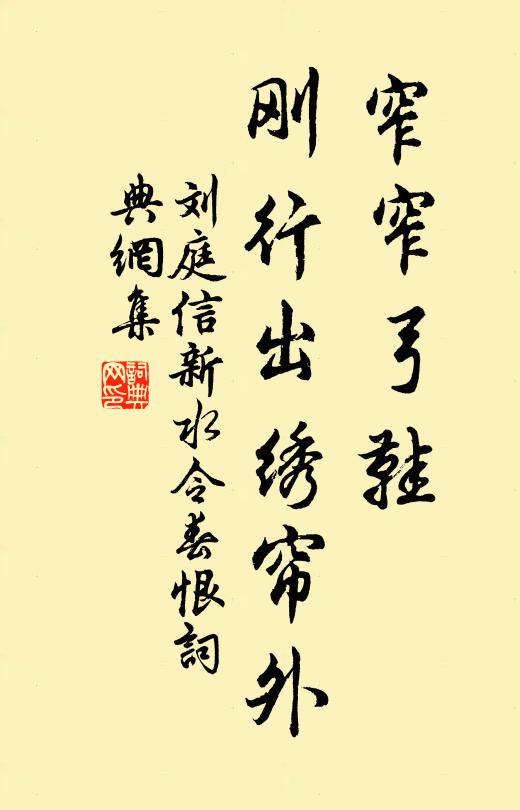 窄窄弓鞋
刚行出绣帘外
刘庭信新水令春恨詞
典網集
詞典
网印